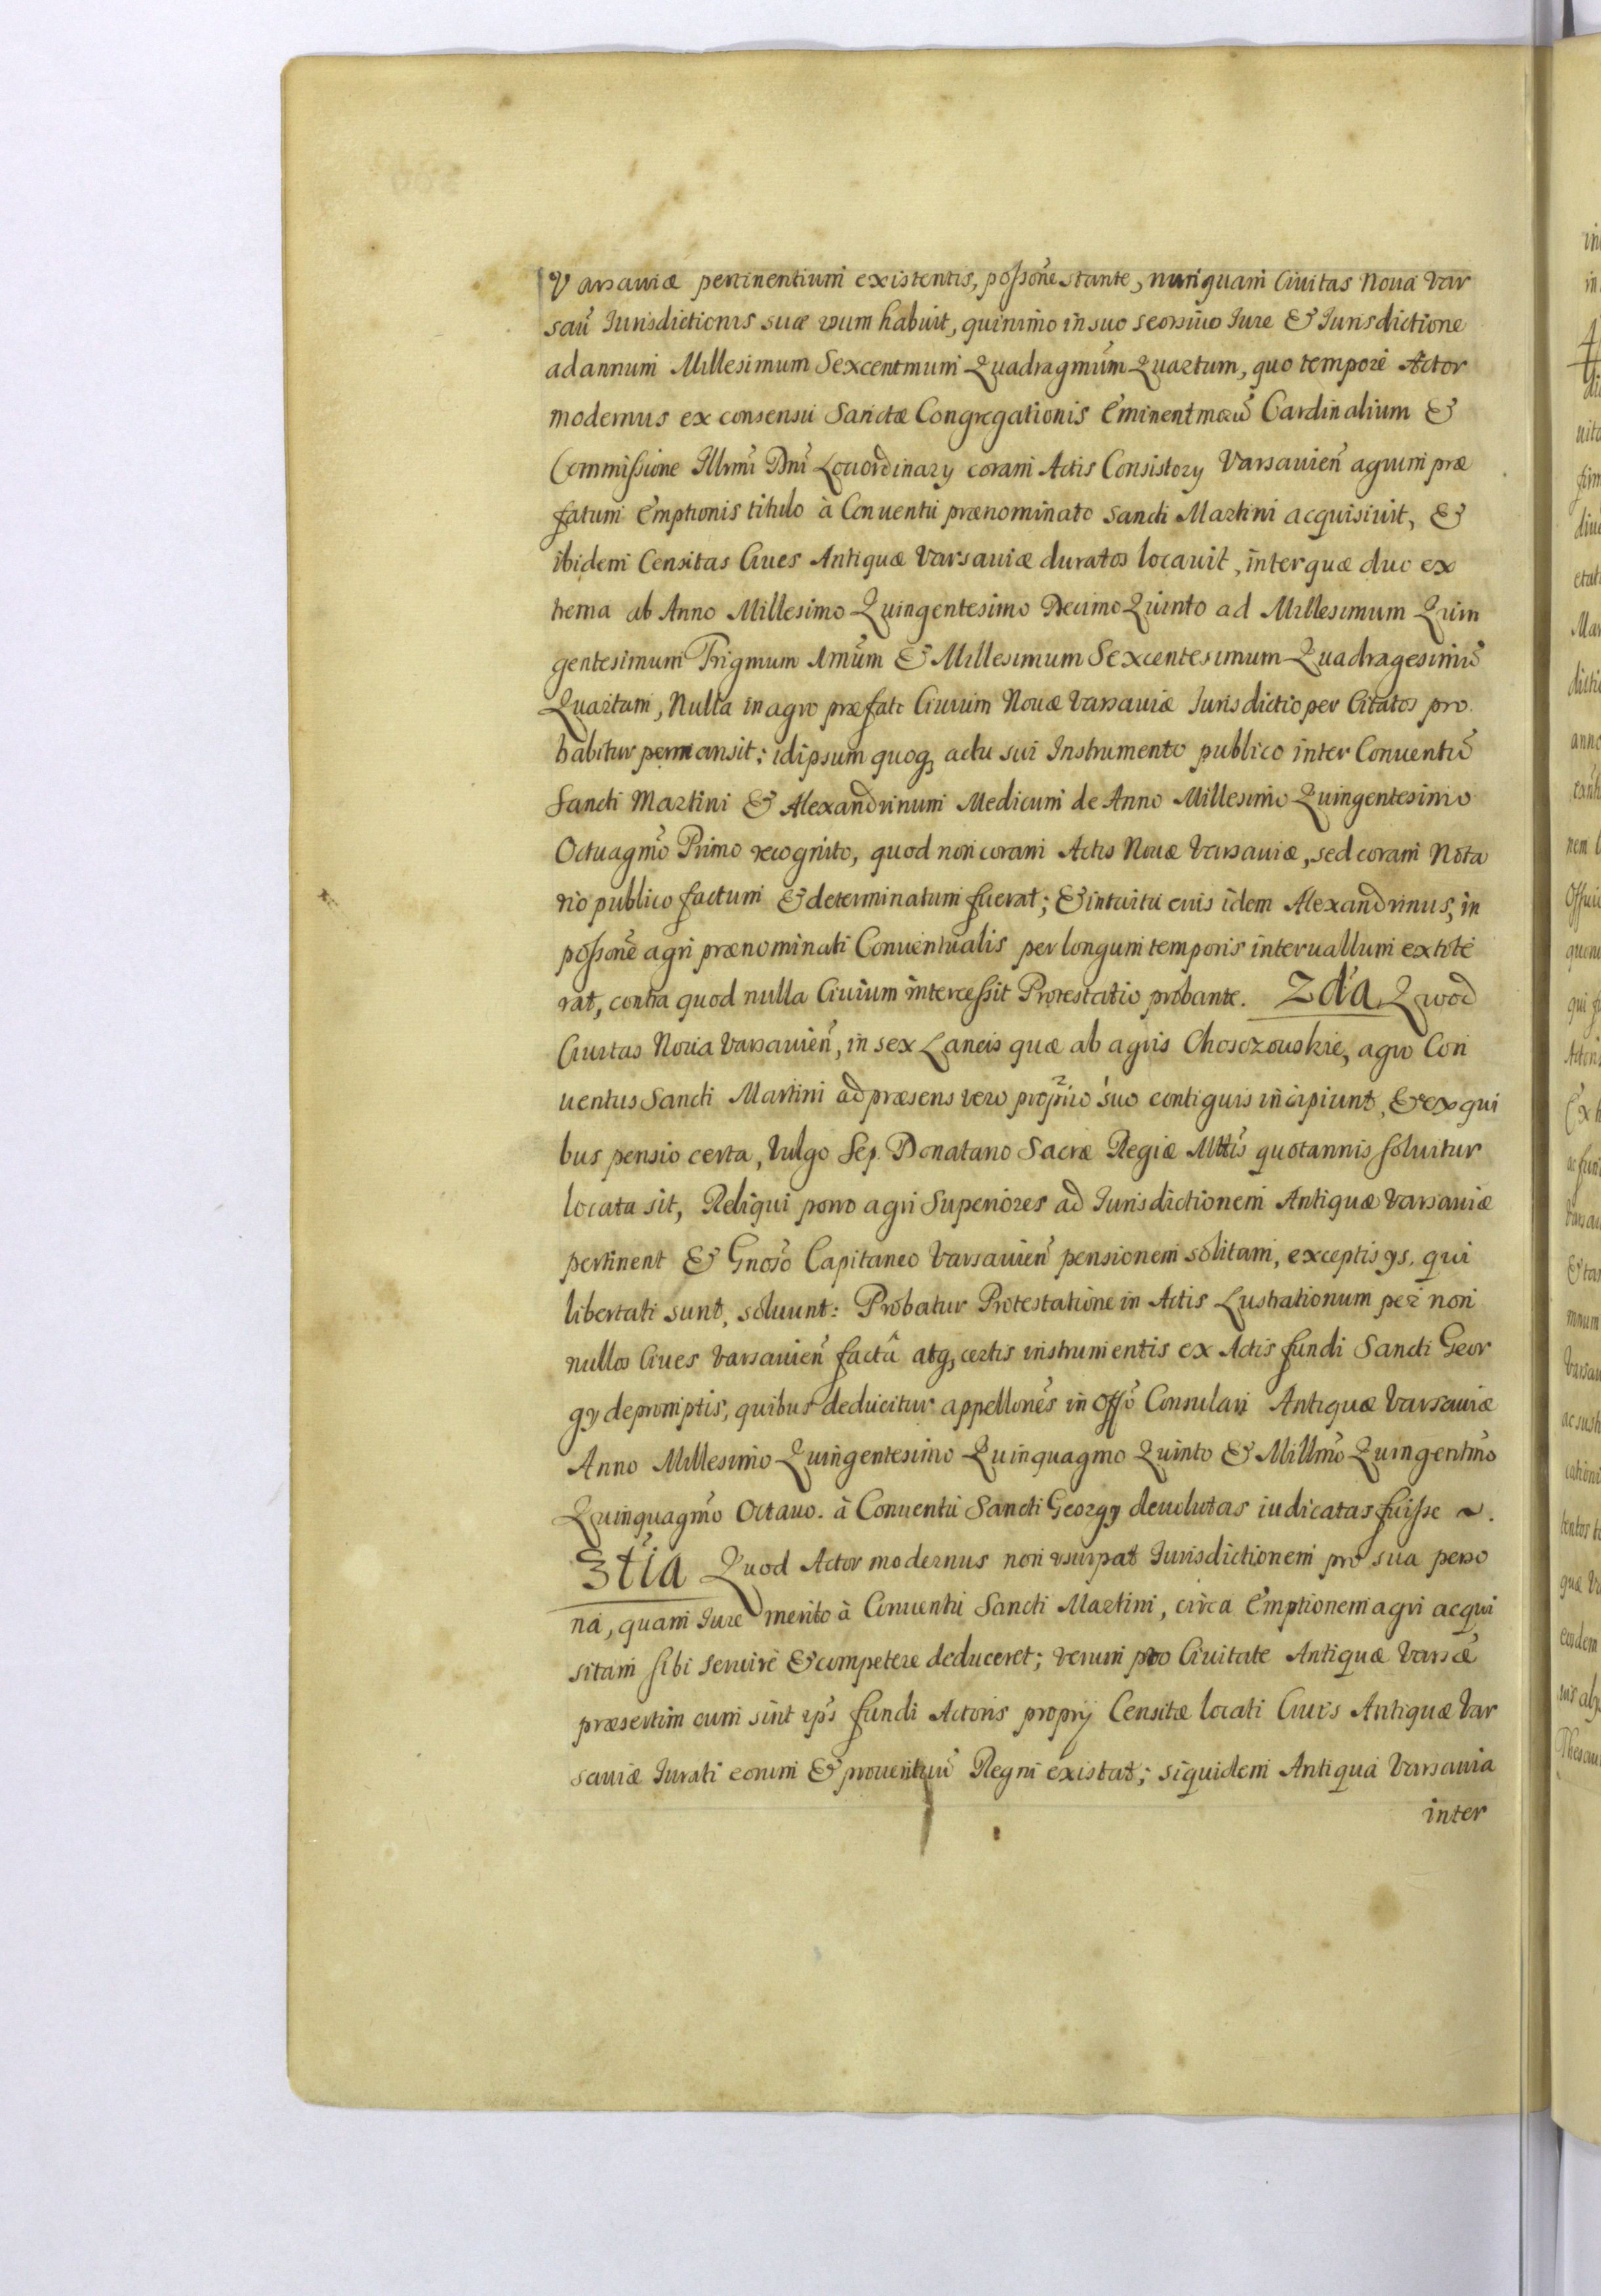 Varsauiæ pertinentium existentis, possone stante, nunquam Ciuitas Noua Var
sau Iurisdictionis suæ usum habuit, quinimo in suo seorsiuo Iure & Iurisdictione
ad annum Millesimum Sexcentmum Quadragmum Quartum, quo tempore Actor
modernus ex consensu Sanctæ Congregationis Eminentmorũ Cardinalium &
Commissione Illrmi Dni Lociordinary coram Actis Consistory Varsauien agrum præ
fatum Emptionis titulo à Conuentu prænominato Sancti Martini acquisiuit, &
ibidem Censitas Ciues Antiquæ Varsauiæ duratos locauit, inter quæ duo ex
trema ab Anno Millesimo Quingentesimo Decimo Quinto ad Millesimum Quin
gentesimum Trigmum 1mum & Millesimum Sexcentesimum Quadragesimũ
Quartum, Nulla in agro præfato Ciuium Nouæ Varsauiæ Iurisdictio per Citatos pro
habitur permansit; idipsum quoq actu sui Instrumento publico inter Conuentũ
Sancti Martini & Alexandrinum Medicum de Anno Millesimo Quingentesimo
Octuagmo Primo recognito, quod non coram Actis Nouæ Varsauiæ, sed coram Nota
rio publico factum & determinatum fuerat; & intuitu euis idem Alexandrinus, in
possone agri prænominati Conuentualis per longum temporis interuallum extite
rat, contra quod nulla Ciuium intercessit Protestatio probante. 2da Quod
Ciuitas Noua Varsauien, in sex Laneis quæ ab agris Chosczouskie, agro Con
uentus Sancti Martini ad præsens vero proprio suo contiguis incipiunt, & ex qui
bus pensio certa, vulgo Sep. Donatano Sacræ Regiæ Mttis quotannis soluitur
locata sit, Reliqui porro agri Superiores ad Iurisdictionem Antiquæ Varsauiæ
pertinent & Gnoso Capitaneo Varsauien pensionem solitam, exceptis ys, qui
libertati sunt, soluunt: Probatur Protestatione in Actis Lustrationum per non
nullos Ciues Varsauien factâ atq certis instrumentis ex Actis fundi Sancti Geor
gy depromptis, quibus deducitur appellones in Offo Consulari Antiquæ Varsauiæ
Anno Millesimo Quingentesimo Quinquagmo Quinto & Millmo Quingentmo
Quinquagmo Octauo. à Conuentu Sancti Georgy deuolutas iudicatas fuisse ~.
3tia Quod Actor modernus non usurpat Iurisdictionem pro sua perso
na, quam Iure merito à Conuentu Sancti Martini, circa Emptionem agri acqui
sitam sibi seruire & competere deduceret; verum pro Ciuitate Antiquæ Varsæ
præsertim cum sint ips fundi Actoris proprij Censitæ locati Ciues Antiquæ Var
sauiæ Iurati eorum & prouentuũ Regni existat; siquidem Antiqua Varsauia
inter